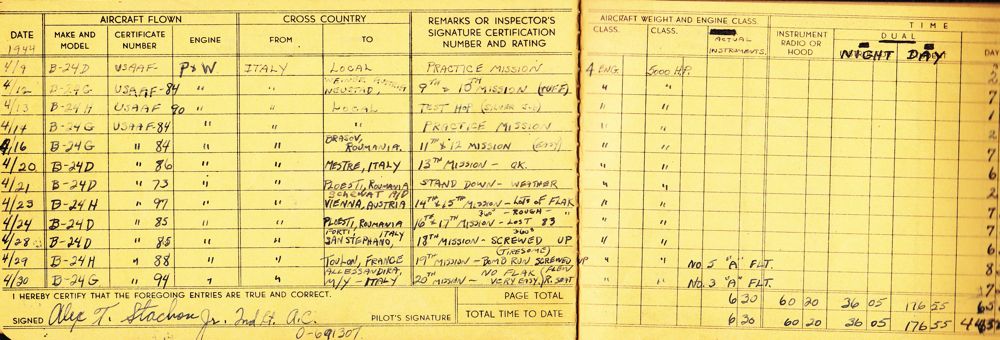 AIRCRAFT FLOWN CROSS COUNTRY REMARKS OR INSPECTOR'S SIGNATURE CERTIFICATION NUMBER AND RATING
DATE MAKE AND MODEL CERTIFICATE NUMBER ENGINE FROM TO
AIRCRAFT WEIGHT AND ENGINE CLASS. TIME
CLASS. CLASS. ACTUAL INSTRUMENTS. INSTRUMENT RADIO OR HOOD DUAL NIGHT DAY DAY
1944
4/9 B-24D USAAF P & W ITALY LOCAL PRACTICE MISSION 4 ENG. 5000 H.P.
4/12 B-24G USAAF-84 " " NEUSTAD, 9TH & 10TH MISSION (RUFF) " "
4/13 B-24H USAAF 90 " " LOCAL TEST HOP " "
4/14 B-24G USAAF-84 " " " PRACTICE MISSION " "
4/16 B-24G " 84 " " BRASOV, ROUMANIA. 11TH & 12 MISSION (EASY) " "
4/20 B-24D " 86 " " MESTRE, ITALY 13TH MISSION - OK. " "
4/21 B-24D " 73 " " PLOESTI, ROUMANIA STAND DOWN - WEATHER " "
4/23 B-24H " 97 " " VIENNA, AUSTRIA 14TH & 15TH MISSION - LOTS OF FLAK " "
4/24 B-24D " 85 " " PLOESTI, ROUMANIA 16TH & 17TH MISSION - LOST 83 360° - ROUGH - " " "
4/28 B-24D " 85 " " PORTI, ITALY SAN STEPHANO, 18TH MISSION - SCREWED UP 360's " "
4/29 B-24H " 88 " " TOULON, FRANCE 19TH MISSION - BOMB RUN SCREWED UP (TIRESOME) " " NO. 5 "A" FLT.
4/30 B-24G " 94 " " ALLESSANDIRA, M/Y - ITALY 20TH MISSION - NO FLAK VERY EASY (FLEW R. SEAT " " NO. 3 "A" FLT.
I HEREBY CERTIFY THAT THE FOREGOING ENTRIES ARE TRUE AND CORRECT. PAGE TOTAL 6 30 60 20 36 05 176 55
SIGNED Alex T. Stachon Jr. 2nd Lt. A.C. PILOT'S SIGNATURE TOTAL TIME TO DATE 6 30 60 20 36 05 176 55
O-691307